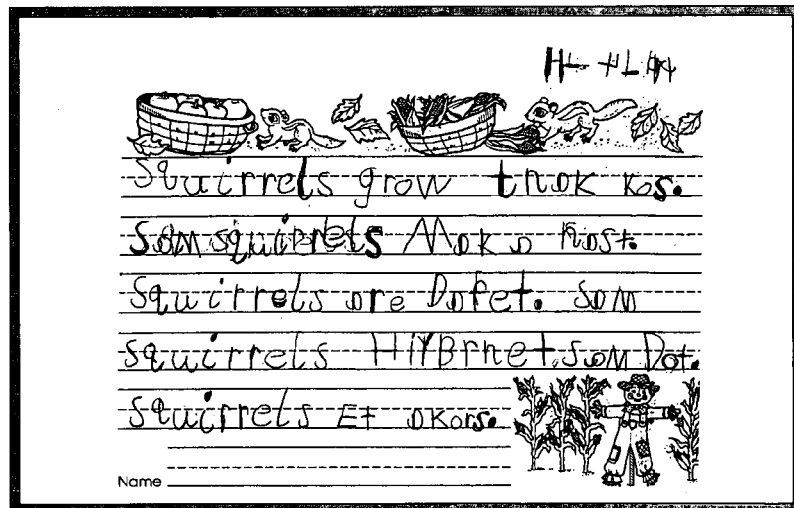 Squirrels grow thok kos.
Som squirrels Mok a nost.
Squirrels are Dafet. Som
squirrels HiYBrnet. som Dot.
Squirrels Et akors.
Name